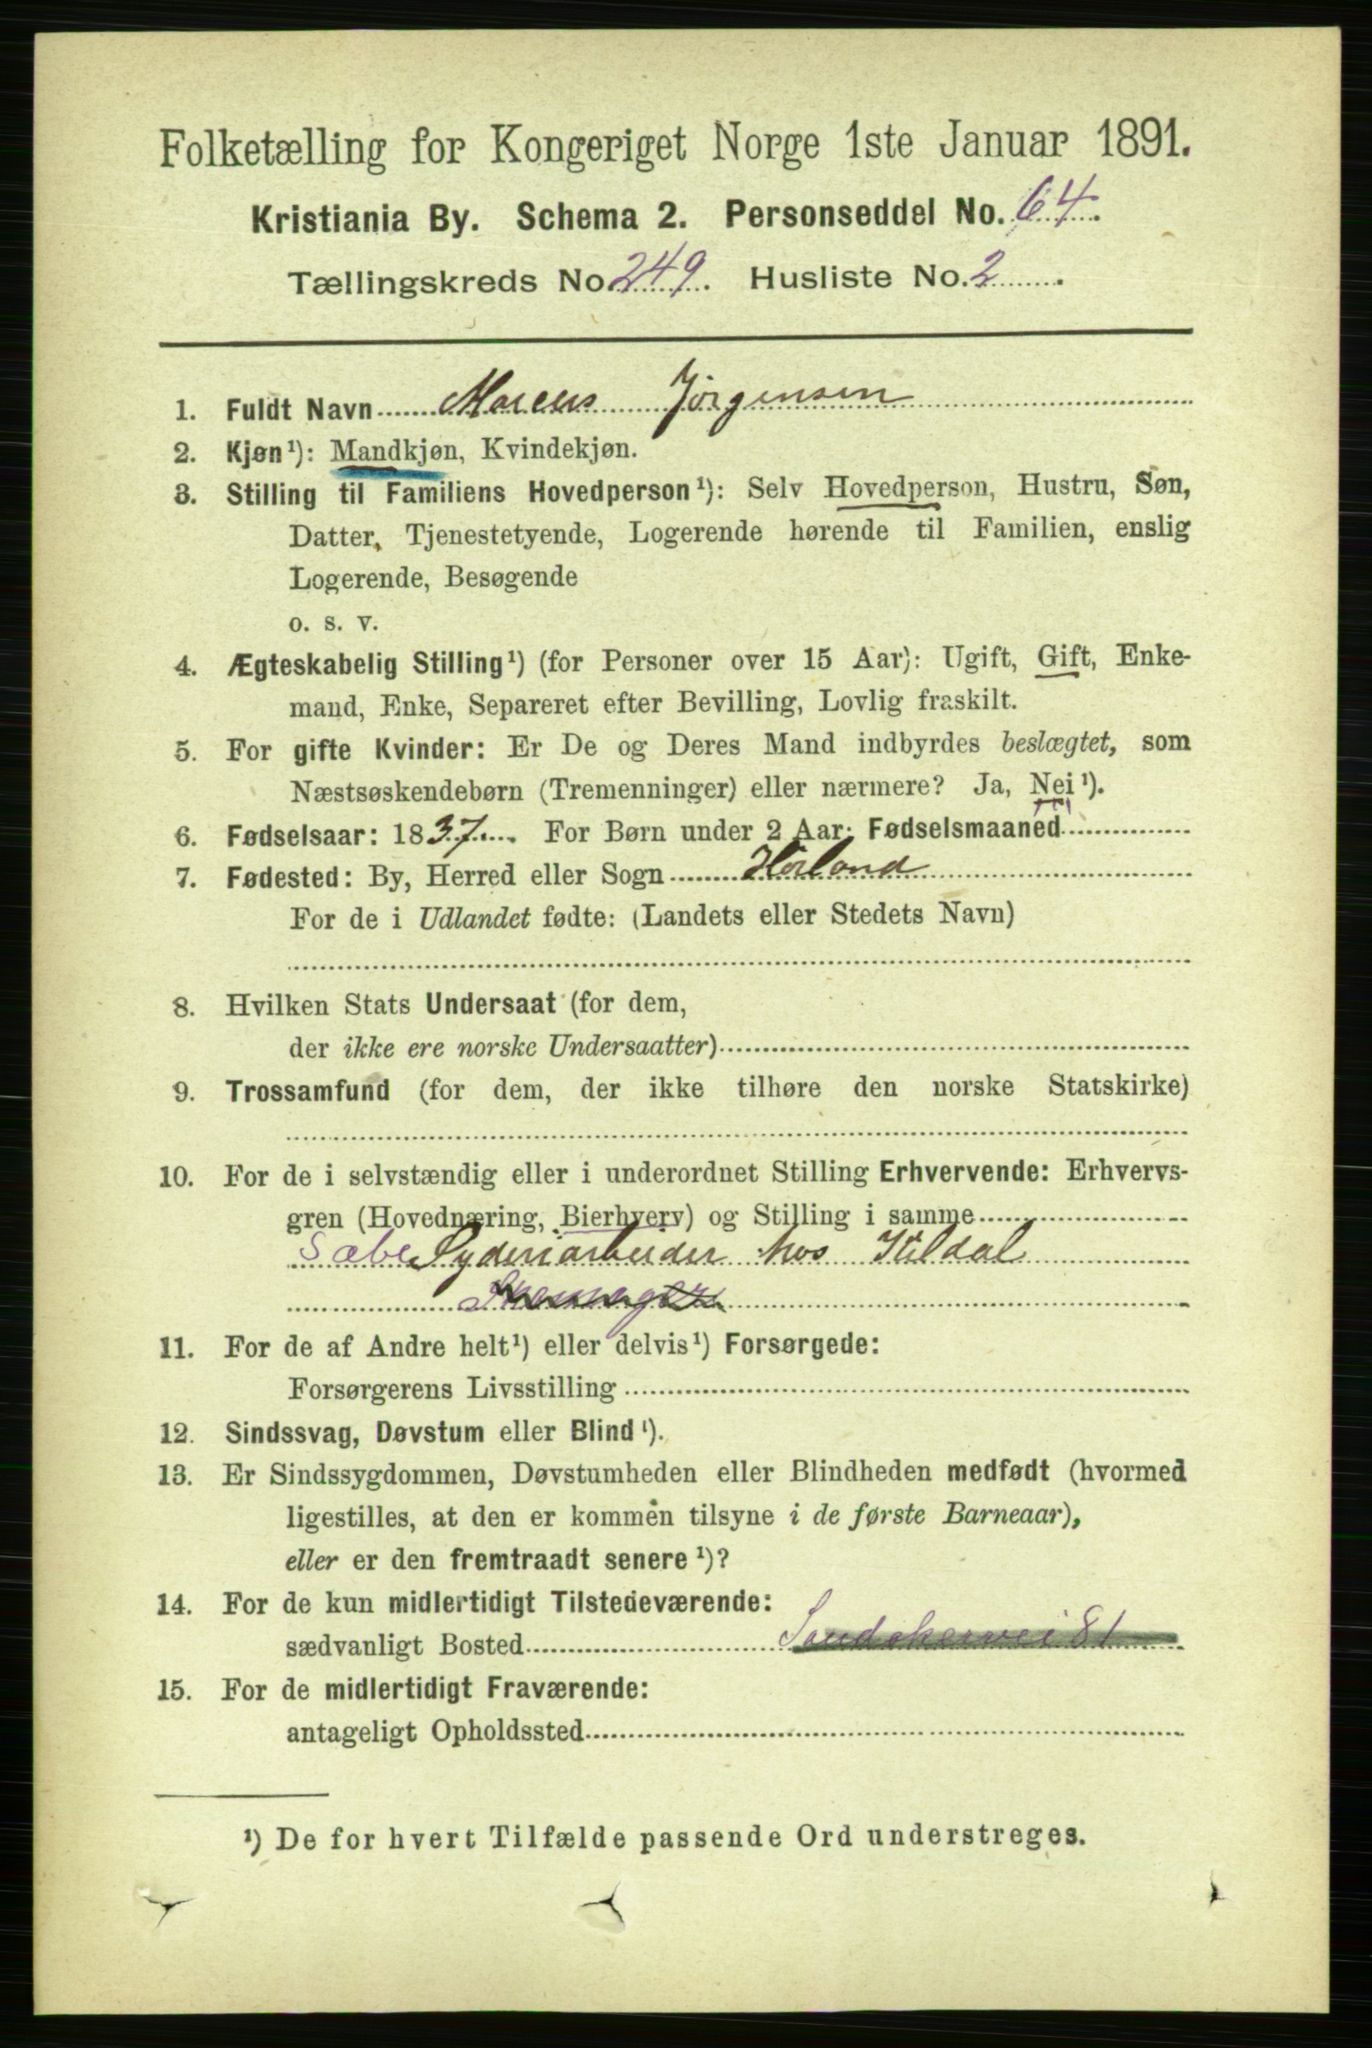 Folketælling for Kongeriget Norge 1ste Januar 1891.
Kristiania By. Schema 2. Personseddel No. 64.
Tællingskreds No. 249. Husliste No. 2.
1. Fuldt Navn Marcus Jørgensen
2. Kjøn¹): Mandkjøn, Kvindekjøn.
3. Stilling til Familiens Hovedperson¹): Selv Hovedperson, Hustru, Søn,
Datter, Tjenestetyende, Logerende hørende til Familien, enslig
Logerende, Besøgende
o. s. v.
4. Ægteskabelig Stilling¹) (for Personer over 15 Aar): Ugift, Gift, Enke-
mand, Enke, Separeret efter Bevilling, Lovlig fraskilt.
5. For gifte Kvinder: Er De og Deres Mand indbyrdes beslægtet, som
Næstsøskendebørn (Tremenninger) eller nærmere? Ja, Nei¹).
6. Fødselsaar: 1837. For Børn under 2 Aar: Fødselsmaaned
7. Fødested: By, Herred eller Sogn Hörland
For de i Udlandet fødte: (Landets eller Stedets Navn)
8. Hvilken Stats Undersaat (for dem,
der ikke ere norske Undersaatter)
9. Trossamfund (for dem, der ikke tilhøre den norske Statskirke)
10. For de i selvstændig eller i underordnet Stilling Erhvervende: Erhvervs-
gren (Hovednæring, Bierhverv) og Stilling i samme
Sæbe Syderiarbeider hos
11. For de af Andre helt¹) eller delvis¹) Forsørgede:
Forsørgerens Livsstilling
12. Sindssvag, Døvstum eller Blind¹).
13. Er Sindssygdommen, Døvstumheden eller Blindheden medfødt (hvormed
ligestilles, at den er kommen tilsyne i de første Barneaar),
eller er den fremtraadt senere¹)?
14. For de kun midlertidigt Tilstedeværende:
sædvanligt Bosted Sandakervei 81
15. For de midlertidigt Fraværende:
antageligt Opholdssted
¹) De for hvert Tilfælde passende Ord understreges.